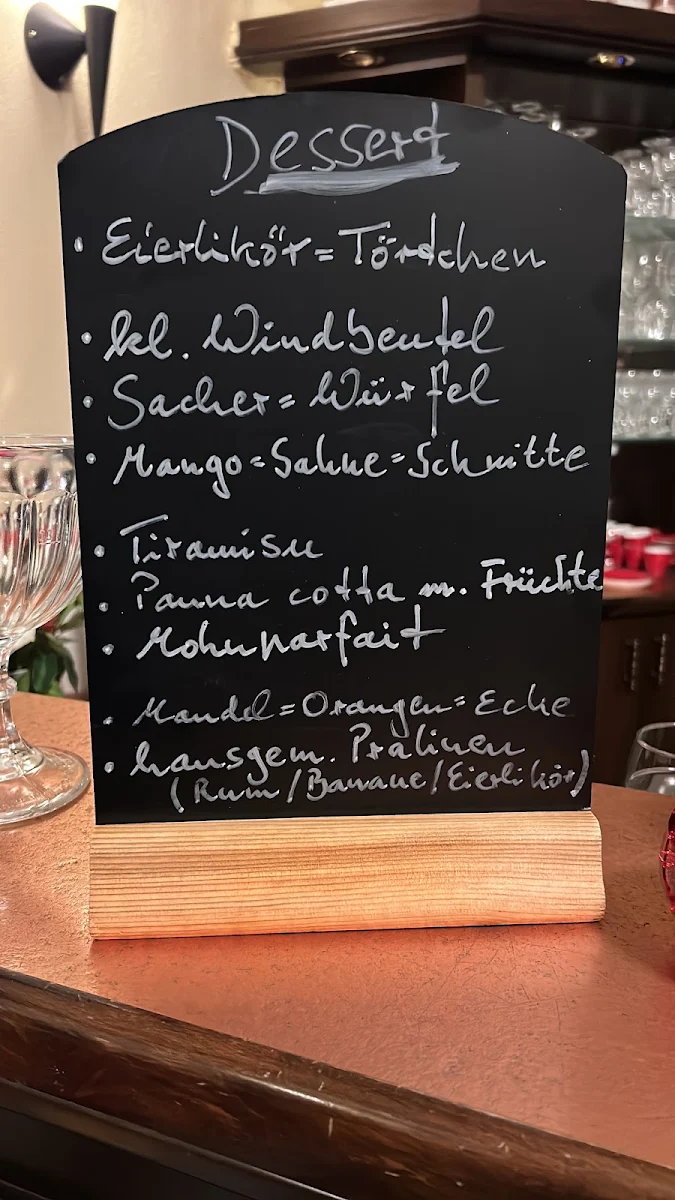 Dessert
• Eierlikör=Törtchen
• kl. Windbeutel
• Sacher=Würfel
• Mango=Sahne=Schnitte
• Tiramisu
• Panna cotta m. Früchte
• Mohnparfait
• Mandel=Orangen=Ecke
• hausgem. Pralinen
(Rum/Banane/Eierlikör)